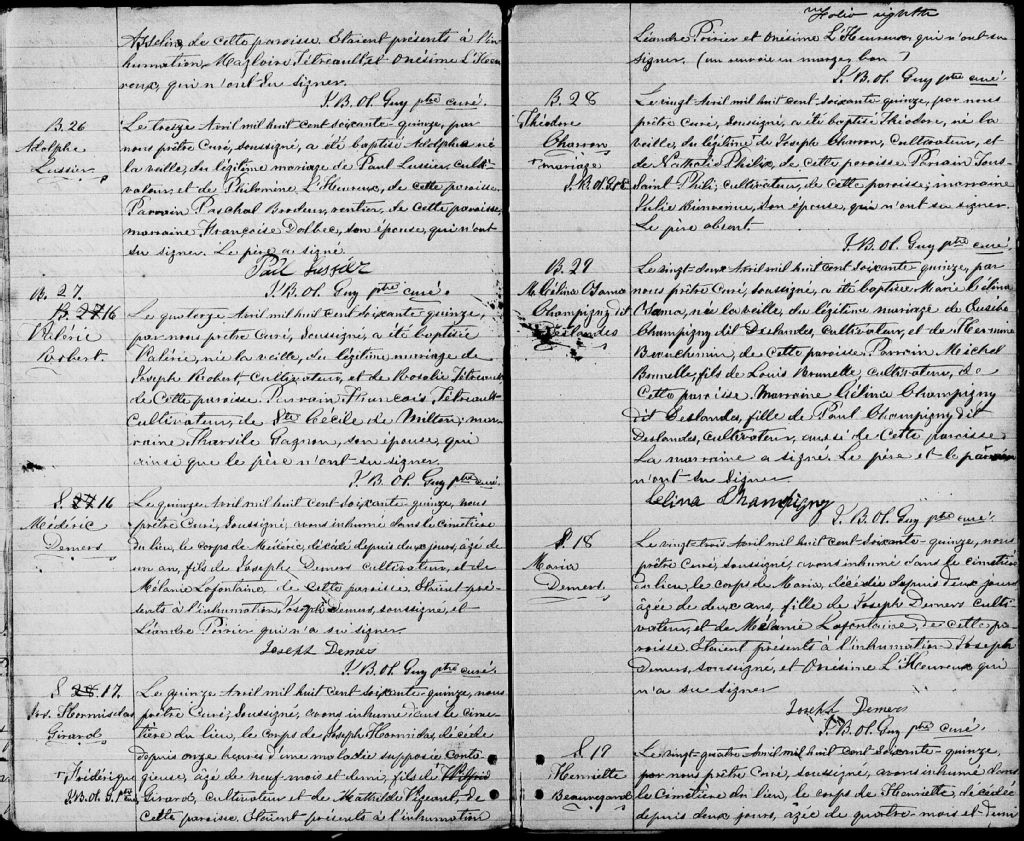 Asselin, de cette paroisse. Etaient présents à l'in-
humation, Magloire Tétreault, et Onésime L'Heu-
reux, qui n'ont su signer.
J. B. Ol. Guy ptre curé.
B. 26
Adolphe
Lussier
Le treize Avril mil huit cent soixante-quinze, par
nous prêtre Curé, soussigné, a été baptisé Adolphe né
la veille, du légitime mariage de Paul Lussier Culti-
vateur, et de Philomine L'Heureux, de cette paroisse.
Parrain Paschal Brodeur, rentier, de cette paroisse,
marraine Françoise Dolbec, son épouse, qui n'ont
su signer. Le père a signé.
Paul Lussier
J. B. Ol. Guy ptre curé.
B. 27.
B. 27 16
Valérie
Robert.
Le quatorze Avril mil huit cent soixante quinze,
par nous prêtre Curé, soussigné, a été baptisée
Valérie, née la veille, du légitime mariage de
Joseph Robert, Cultivateur, et de Rosalie Tétreault
de Cette paroisse. Parrain François Tétreault
Cultivateur, de Ste Cécile de Milton; mar-
raine Tharsile Gagnon, son épouse, qui
ainsi que le père n'ont su signer.
J. B. Ol. Guy ptre curé.
S. 27 16
Médéric
Demers
Le quinze Avril mil huit Cent soixante-quinze, nous
prêtre Curé, soussigné, avons inhumé dans le cimetière
du lieu, le corps de Médéric, décédé depuis deux jours, âgé de
un an, fils de Joseph Demers cultivateur, et de
Mélanie Lafontaine, de cette paroisse. Etaient pré-
sents à l'inhumation Joseph Demers, soussigné, et
Léandre Poirier qui n'a su signer.
Joseph Demers
J. B. Ol. Guy ptre curé.
S. 28. 17.
Jos. Hormisdas
Girard
Le quinze Avril mil huit Cent soixante-quinze, nous
prêtre Curé, soussigné, avons inhumé dans le cime-
tière du lieu, le corps de Joseph Hormisdas, décédé
depuis onze heures d'une maladie supposée Conta-
gieuse, âgé de neuf mois et demi, fils de
+ Frédérique
J. B. Ol. G. Ptre
Girard, cultivateur et de Mathilde Vigeant, de
cette paroisse. Etaient présents à l'inhumation
Folio eighth
Léandre Poirier et Onésime L'Heureux, qui n'ont su
signer. (un renvoi en marge bon)
J. B. Ol. Guy ptre curé.
B. 28
Théodore
Charron
+ mariage
J. B. Ol. G. Ptre
Le vingt Avril mil huit cent soixante quinze, par nous
prêtre Curé, soussigné, a été baptisé Théodore, né la
veille, du légitime + de Joseph Charron, Cultivateur, et
de Nathalie Philix, de cette paroisse. Parrain Tous-
Saint Phili, cultivateur, de cette paroisse; marraine
Julie Bienvenue, son épouse, qui n'ont su signer.
Le père absent.
J. B. Ol. Guy ptre curé.
B. 29
M. Célina Osama
Champigny dit
Deslandes
Le vingt-deux Avril mil huit cent soixante quinze, par
nous prêtre Curé, soussigné, a été baptisée Marie Célina
Osama, née la veille, du légitime mariage de Eusèbe
Champigny dit Deslandes, cultivateur, et de Hermine
Beauchemin, de cette paroisse. Parrain Michel
Brunelle, fils de Louis Brunelle cultivateur, de
Cette paroisse. Marraine Céline Champigny
dit Deslandes, fille de Paul Champigny dit
Deslandes, cultivateur, aussi de Cette paroisse.
La marraine a signé. Le père et le parrain
n'ont su signer
Celina Champigny
J. B. Ol. Guy ptre curé.
S. 18
Maria
Demers.
Le vingt-trois Avril mil huit cent-soixante-quinze, nous
prêtre Curé, soussigné, avons inhumé dans le cimetière
du lieu, le corps de Maria, décédée depuis deux jours
âgée de deux ans, fille de Joseph Demers culti-
vateur, et de Mélanie Lafontaine, de cette pa-
roisse. Etaient présents à l'inhumation Joseph
Demers, soussigné, et Onésime L'Heureux qui
n'a su signer
Joseph Demers
J. B. Ol. Guy ptre curé.
S. 19
Henriette
Beauregard
Le vingt-quatre Avril mil huit cent soixante-quinze,
par nous prêtre Curé, soussigné, avons inhumé dans
le Cimetière du lieu, le corps de Henriette, décédée
depuis deux jours, âgée de quatre-mois et demi